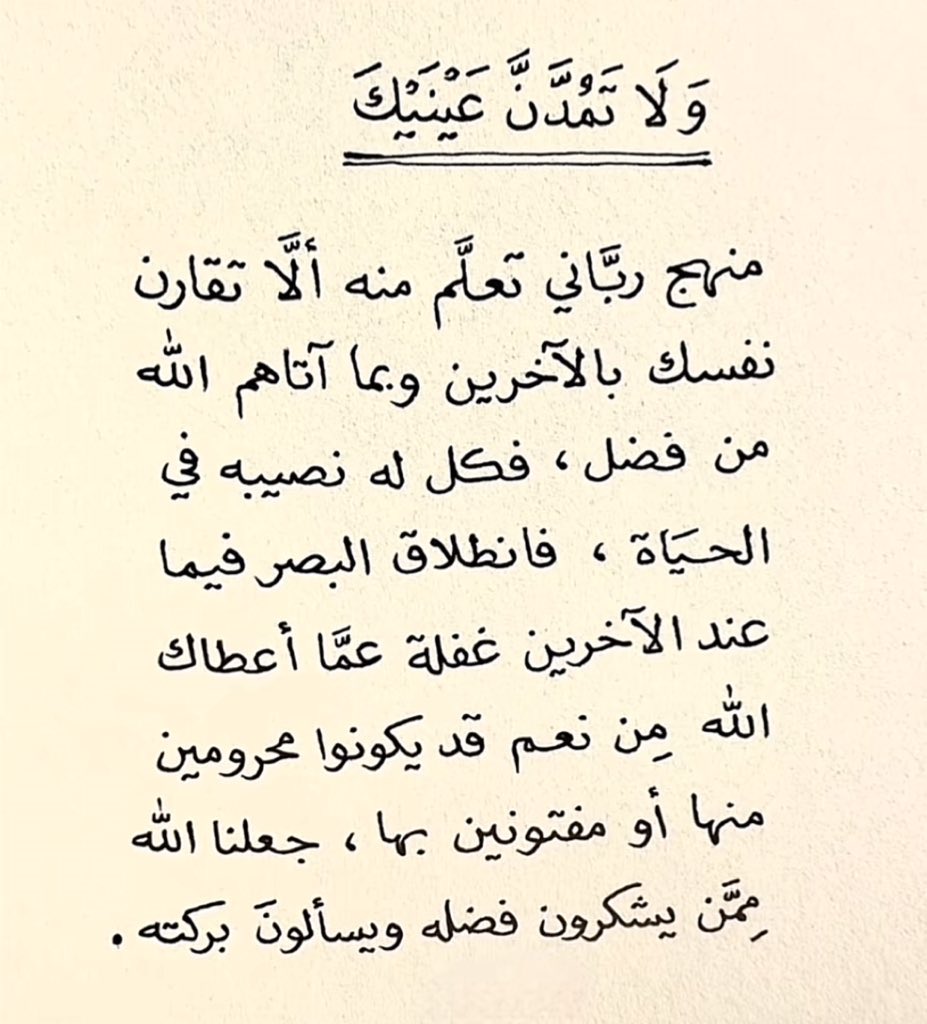 وَلَا تَمُدَّنَّ عَيْنَيْكَ
منهج ربَّاني تعلَّم منه ألَّا تقارن
نفسك بالآخرين وبما آتاهم الله
من فضل ، فكل له نصيبه في
الحيَاة ، فانطلاق البصر فيما
عند الآخرين غفلة عمَّا أعطاك
الله مِن نعم قد يكونوا محرومين
منها أو مفتونين بها ، جعلنا الله
مِمَّن يشكرون فضله ويسألونَ بركته .